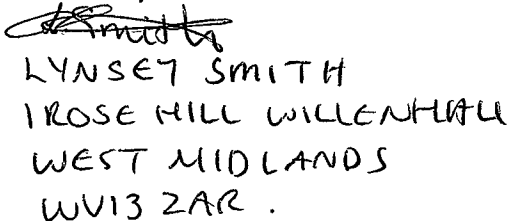 Smith
LYNSEY SMITH
1 ROSE HILL WILLENHALL
WEST MIDLANDS
WV13 2AR.